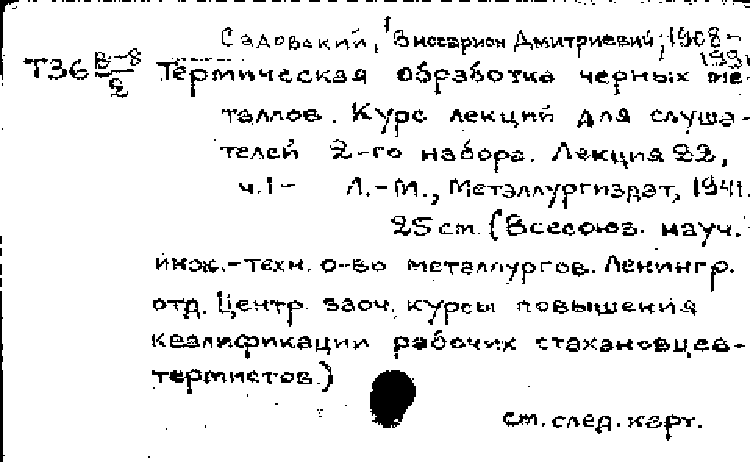 Садовский, Виссарион Дмитриевич, 1908-
Т36 В-8/2 Термическая обработка черных ме-
таллов. Курс лекций для слуша-
телей 2-го набора. Лекция 22,
ч.1- Л.-М., Металлургиздат, 1941.
25 см. (Всесоюз. науч.
инж.-техн. о-во металлургов. Ленингр.
отд. Центр. заоч. курсы повышения
квалификации рабочих стахановцев-
термистов.)
см. след. карт.